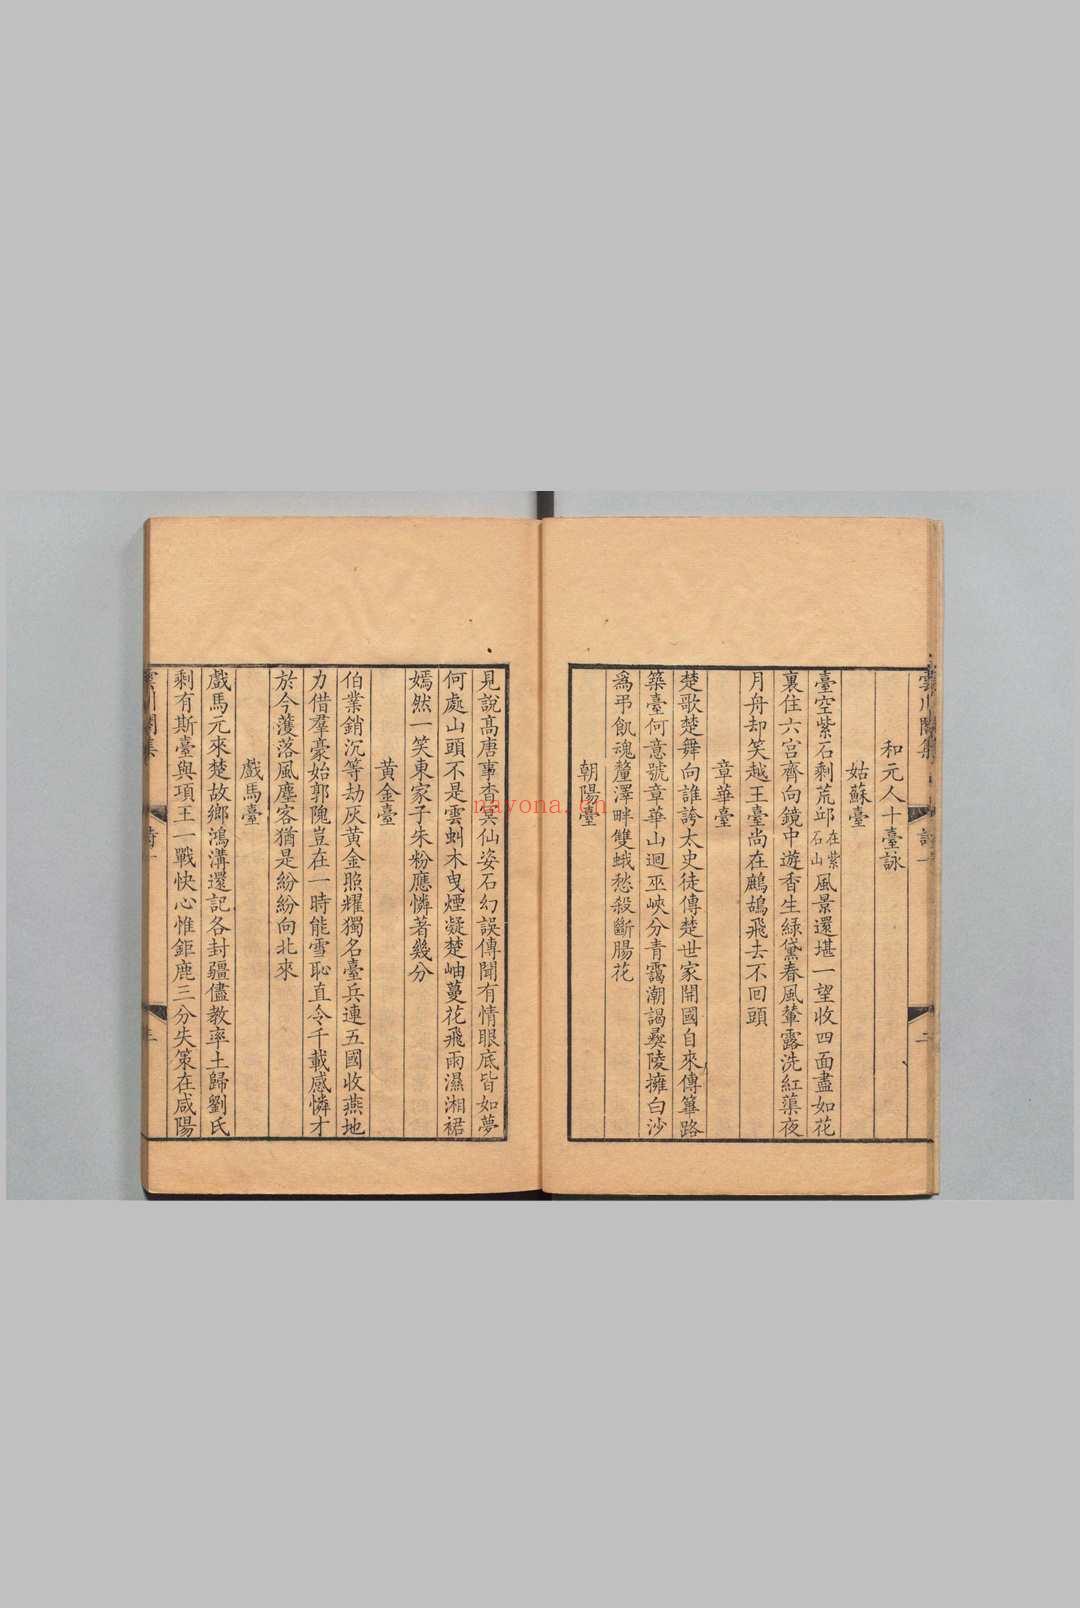 雲川閣集 詩一 二
和元人十臺詠
姑蘇臺
臺空紫石剩荒邱在紫石山風景還堪一望收四面盡如花
裏住六宮齊向鏡中遊香生綠黛春風輦露洗紅蕖夜
月舟却笑越王臺尚在鷓鴣飛去不回頭
章華臺
楚歌楚舞向誰誇太史徒傳楚世家開國自來傳篳路
築臺何意號章華山迴巫峽分青靄潮謁彝陵擁白沙
爲弔飢魂釐澤畔雙蛾愁殺斷腸花
朝陽臺
見說高唐事杳冥仙姿石幻誤傳聞有情眼底皆如夢
何處山頭不是雲蚪木曳煙凝楚岫蔓花飛雨濕湘裙
嫣然一笑東家子朱粉應憐著幾分
黃金臺
伯業銷沉等劫灰黃金照耀獨名臺兵連五國收燕地
力借羣豪始郭隗豈在一時能雪恥直令千載感憐才
於今濩落風塵客猶是紛紛向北來
戲馬臺
戲馬元來楚故鄉鴻溝還記各封疆儘教率土歸劉氏
剩有斯臺與項王一戰快心惟鉅鹿三分失策在咸陽
雲川閣集 詩一 三
nayona.cn